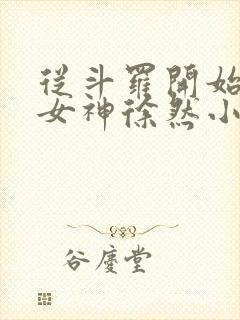 從斗羅開始
女神徐然小
谷慶堂